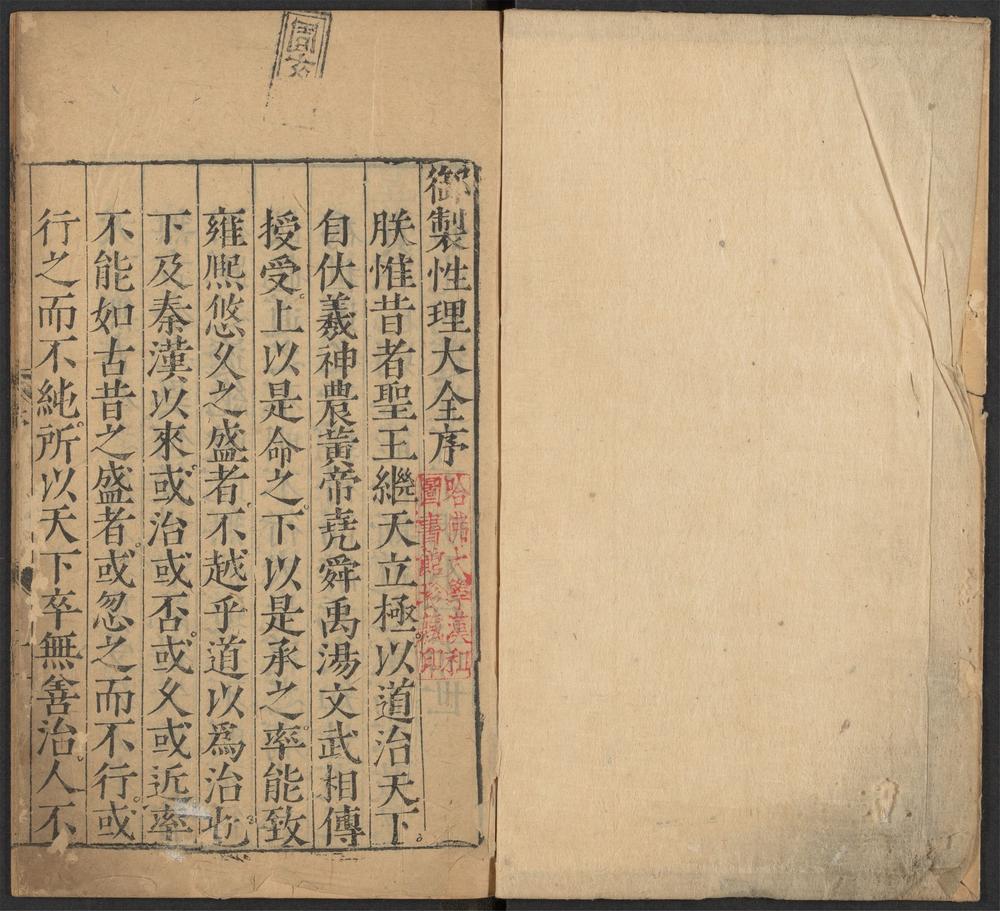 御製性理大全序
朕惟昔者聖王繼天立極以道治天下。
自伏羲神農黃帝堯舜禹湯文武相傳
授受。上以是命之。下以是承之率能致
雍熙悠久之盛者。不越乎道以爲治也。
下及秦漢以來。或治或否。或久或近率
不能如古昔之盛者。或忽之而不行。或
行之而不純。所以天下卒無善治。人不
哈佛大學漢和
圖書館珍藏印